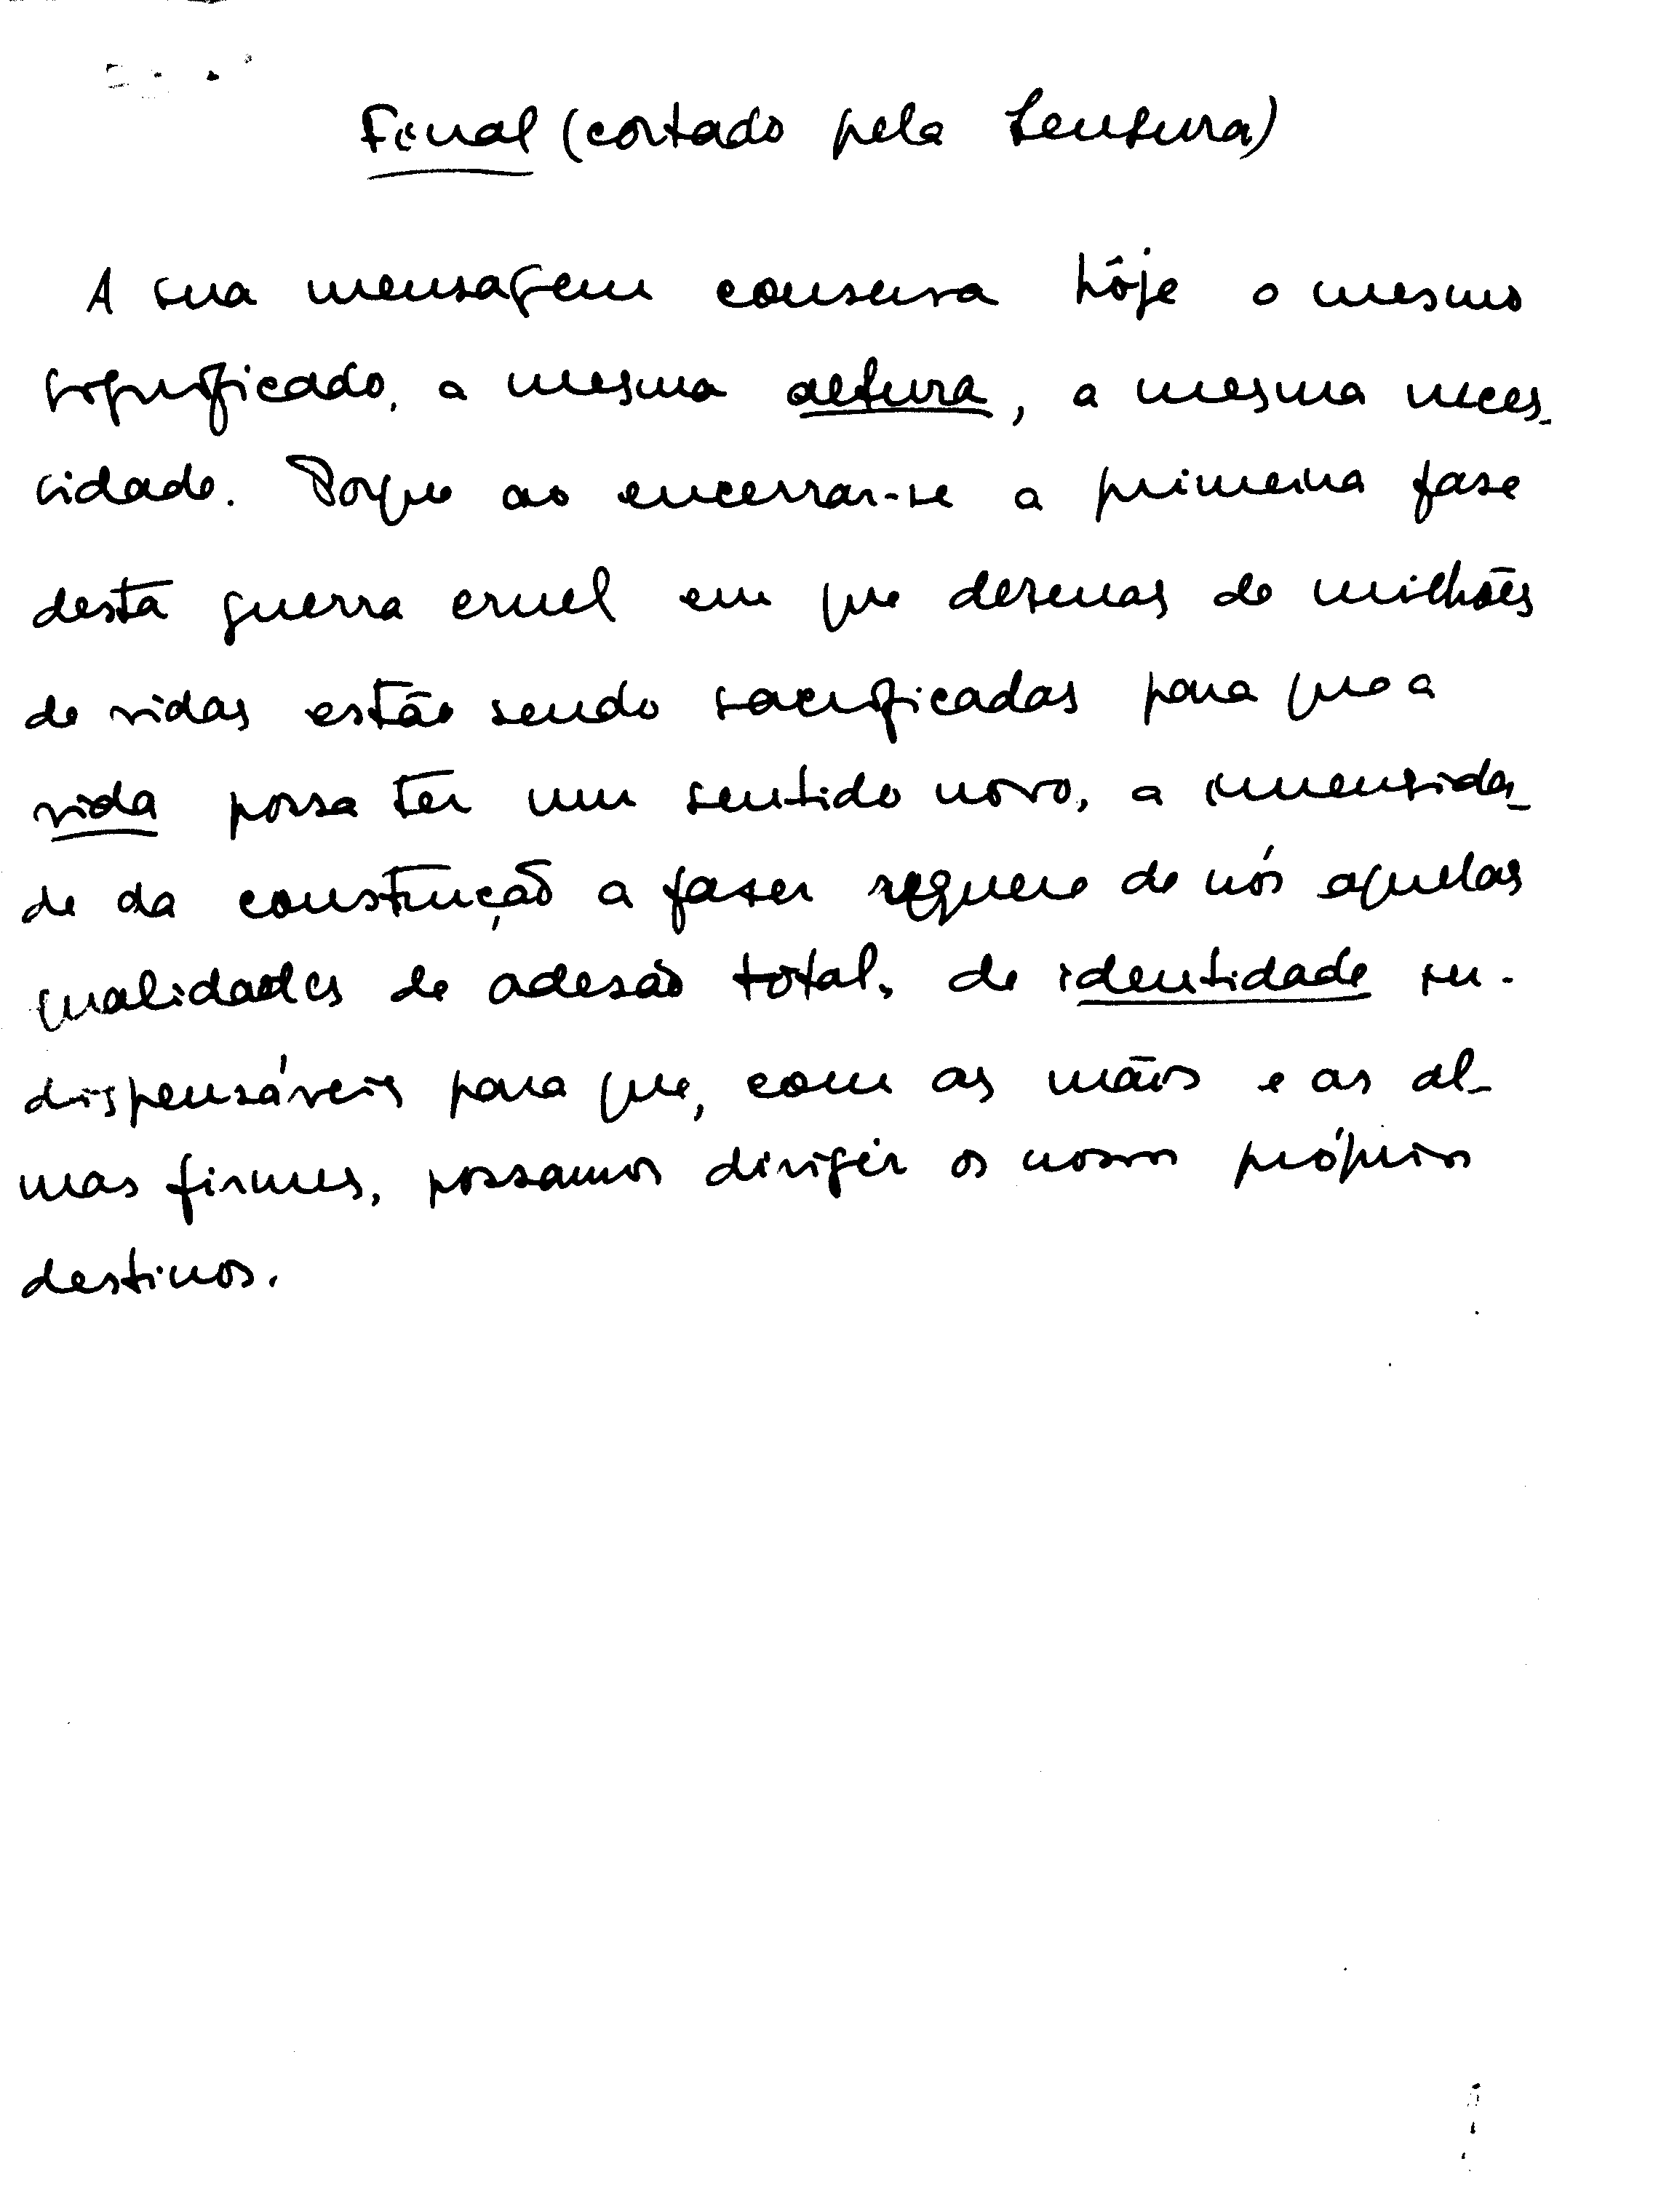 Final (cortado pela Censura)
A sua mensagem conserva hôje o mesmo
significado, a mesma altura, a mesma neces-
cidade. Porque ao encerrar-se a primeira fase
desta guerra cruel em que desenas de milhões
de vidas estão sendo sacrificadas para que a
vida possa ter um sentido novo, a imensida-
de da construção a faser requere de nós aquelas
qualidades de adesão total, de identidade in-
dispensáveis para que, com as mãos e as al-
mas firmes, possamos dirigir os nossos próprios
destinos.